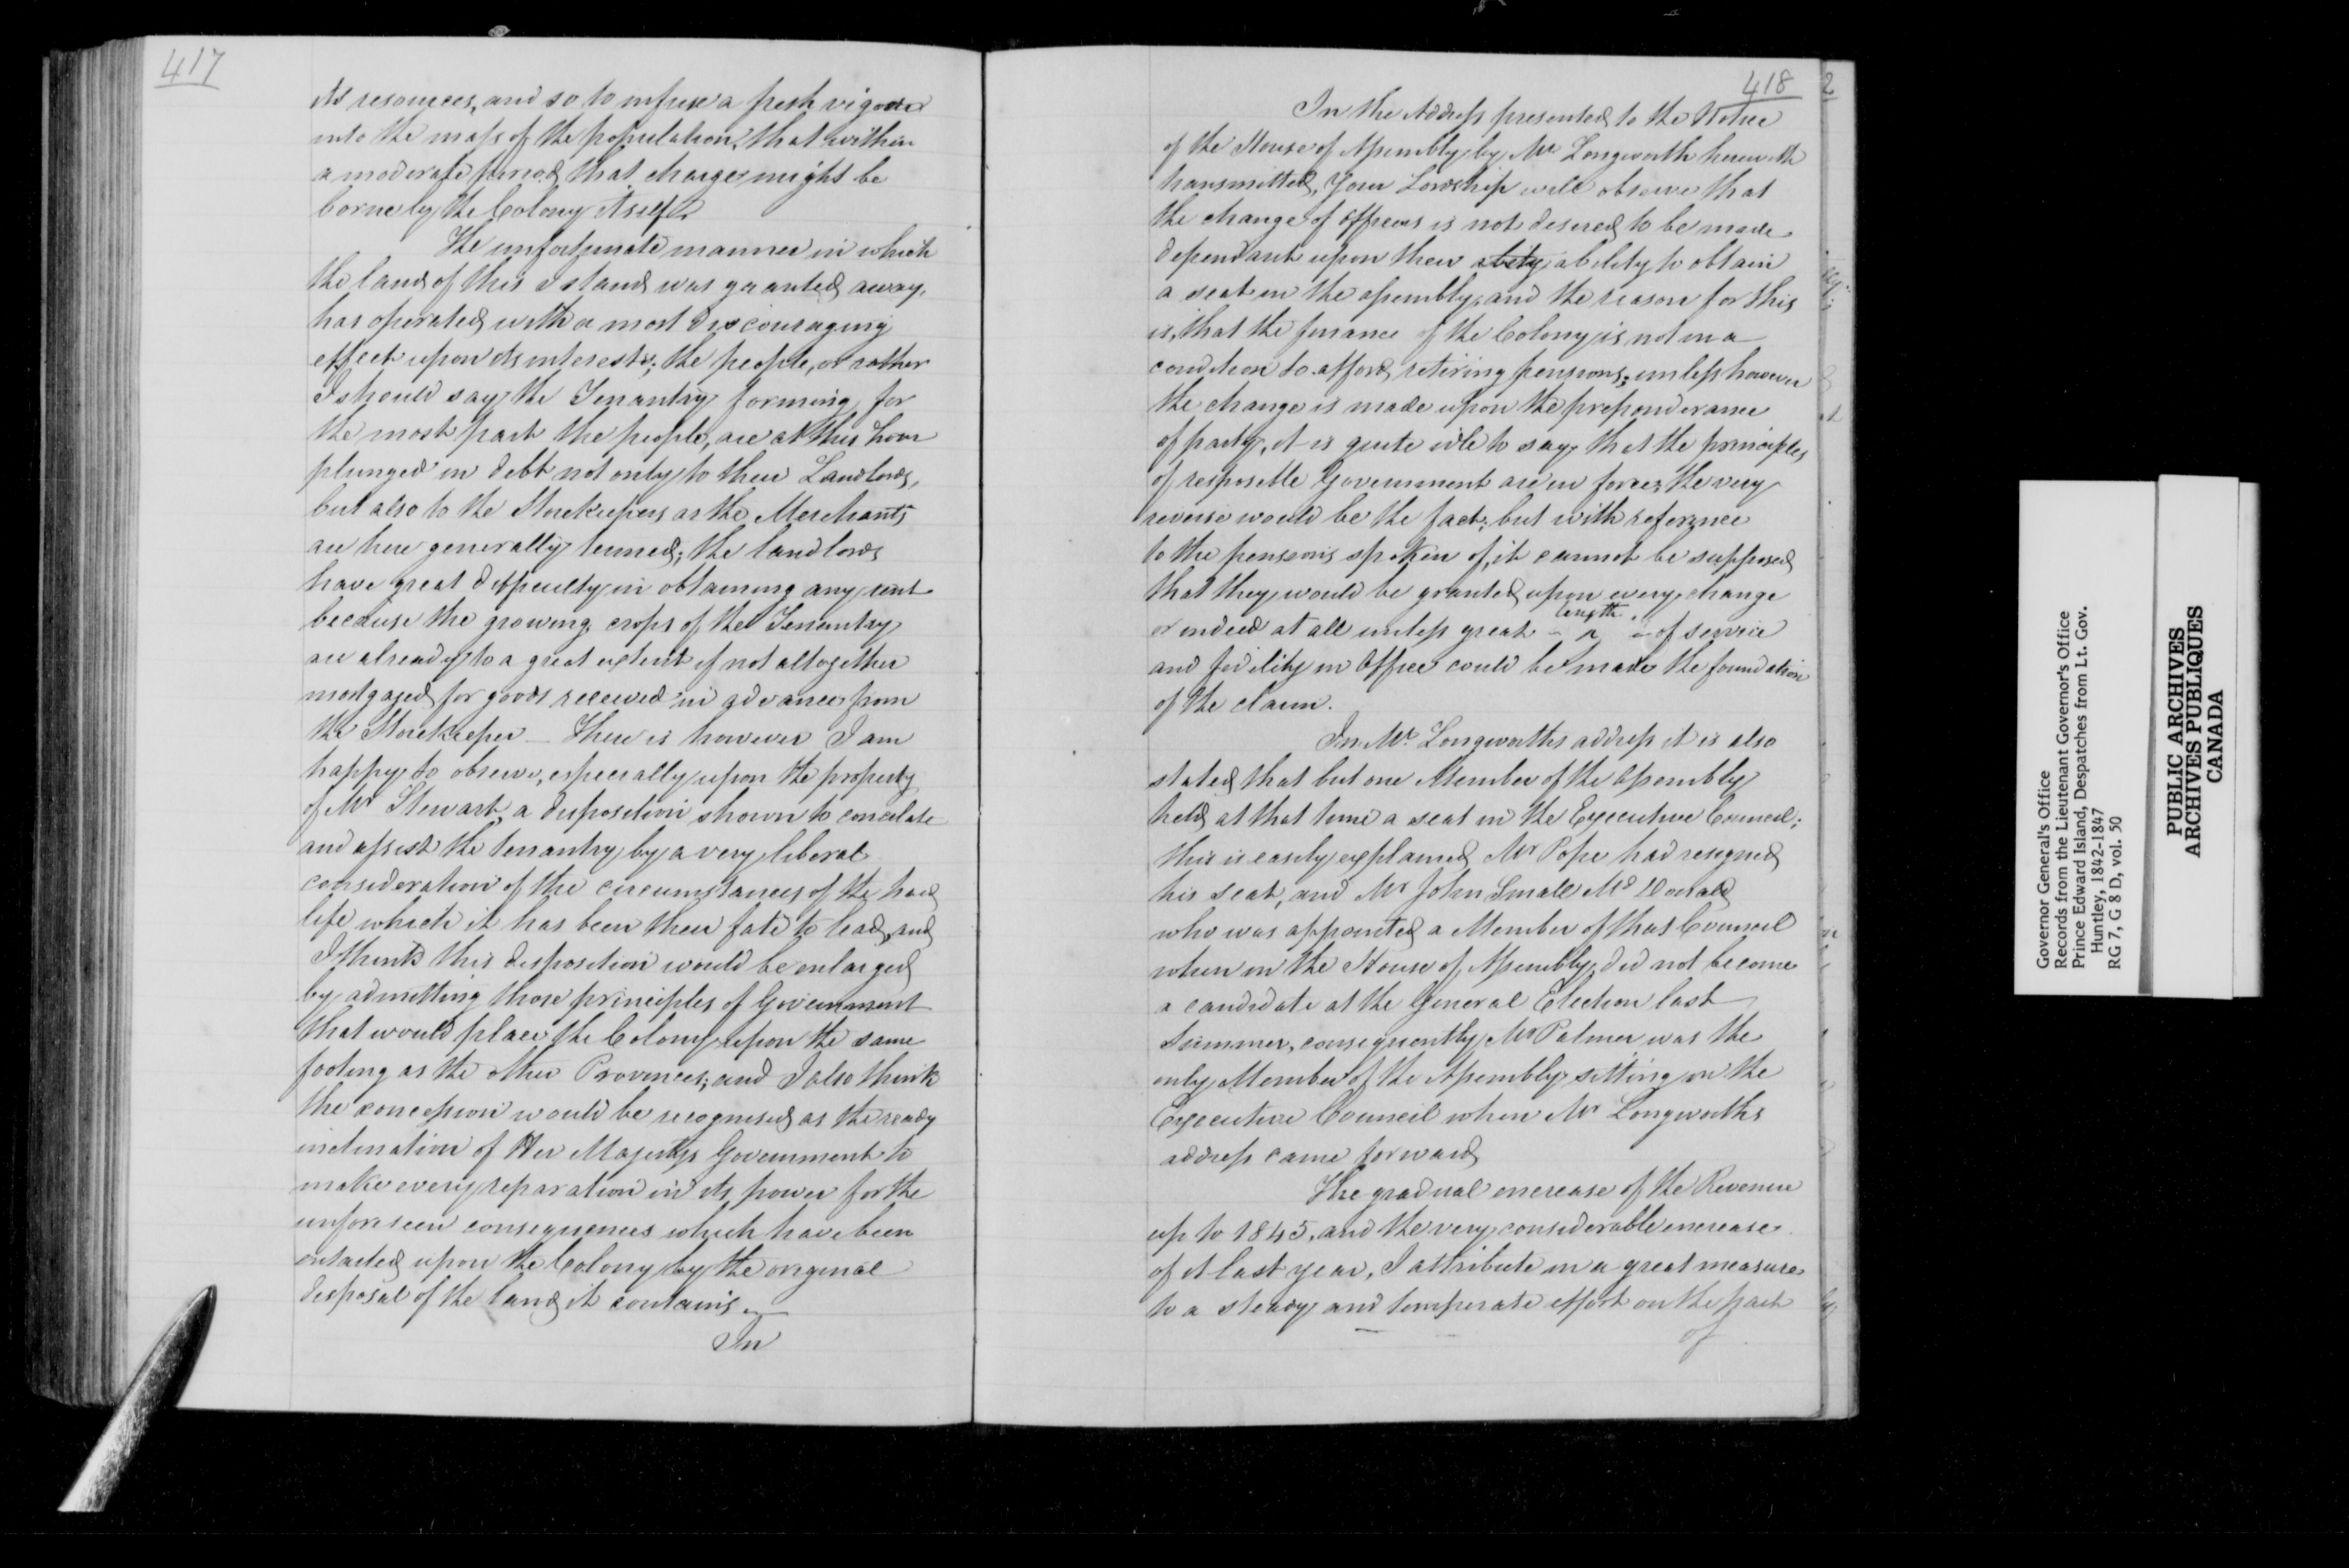 417
its resources, and so to infuse a fresh vigour
into the mass of the population, that within
a moderate period that charge might be
borne by the Colony itself.
The unfortunate manner in which
the land of this Island was granted away,
has operated with a most discouraging
effect upon its interests; the people, or rather
I should say the Tenantry forming for
the most part the people, are at this hour
plunged in debt not only to their Landlords,
but also to the Storekeepers as the Merchants
are here generally termed; the landlords
have great difficulty in obtaining any rent
because the growing crops of the Tenantry
are already to a great extent if not altogether
mortgaged for goods received in advance from
the Storekeeper — There is however I am
happy to observe, especially upon the property
of Mr Stewart, a disposition shown to conciliate
and assist the tenantry by a very liberal
consideration of the circumstances of the hard
life which it has been their fate to lead, and
I think this disposition would be enlarged
by admitting those principles of Government
that would place the Colony upon the same
footing as the other Provinces; and I also think
the concession would be recognised as the ready
inclination of Her Majestys Government to
make every reparation in its power for the
unforeseen consequences which have been
entailed upon the Colony by the original
disposal of the land it contains. —
In
418
In the Address presented to the Notice
of the House of Assembly by Mr Longworth herewith
transmitted, Your Lordship will observe that
the change of officers is not desired to be made
dependant upon their ability to obtain
a seat in the assembly, and the reason for this
is, that the finance of the Colony is not in a
condition to afford retiring pensions; unless however
the change is made upon the preponderance
of party, it is quite idle to say that the principles
of resposible Government are in force; the very
reverse would be the fact; but with reference
to the pensions spoken of, it cannot be supposed
that they would be granted upon every change
or indeed at all unless great length of service
and fidelity in Office could be made the foundation
of the claim.
In Mr Longworths address it is also
stated that but one Member of the Assembly
held at that time a seat in the Executive Council;
this is easily explained Mr Pope had resigned
his seat, and Mr John Small McDonald
who was appointed a Member of that Council
when in the House of Assembly, did not become
a candidate at the General Election last
Summer, consequently Mr Palmer was the
only Member of the Assembly sitting in the
Executive Council when Mr Longworths
address came forward
The gradual encrease of the Revenue
up to 1845, and the very considerable encrease
of it last year, I attribute in a great measure
to a steady and temperate effort on the part
of
2
Governor General's Office
Records from the Lieutenant Governor's Office
Prince Edward Island, Despatches from Lt. Gov.
Huntley, 1842-1847
RG 7, G 8 D, vol. 50
PUBLIC ARCHIVES
ARCHIVES PUBLIQUES
CANADA